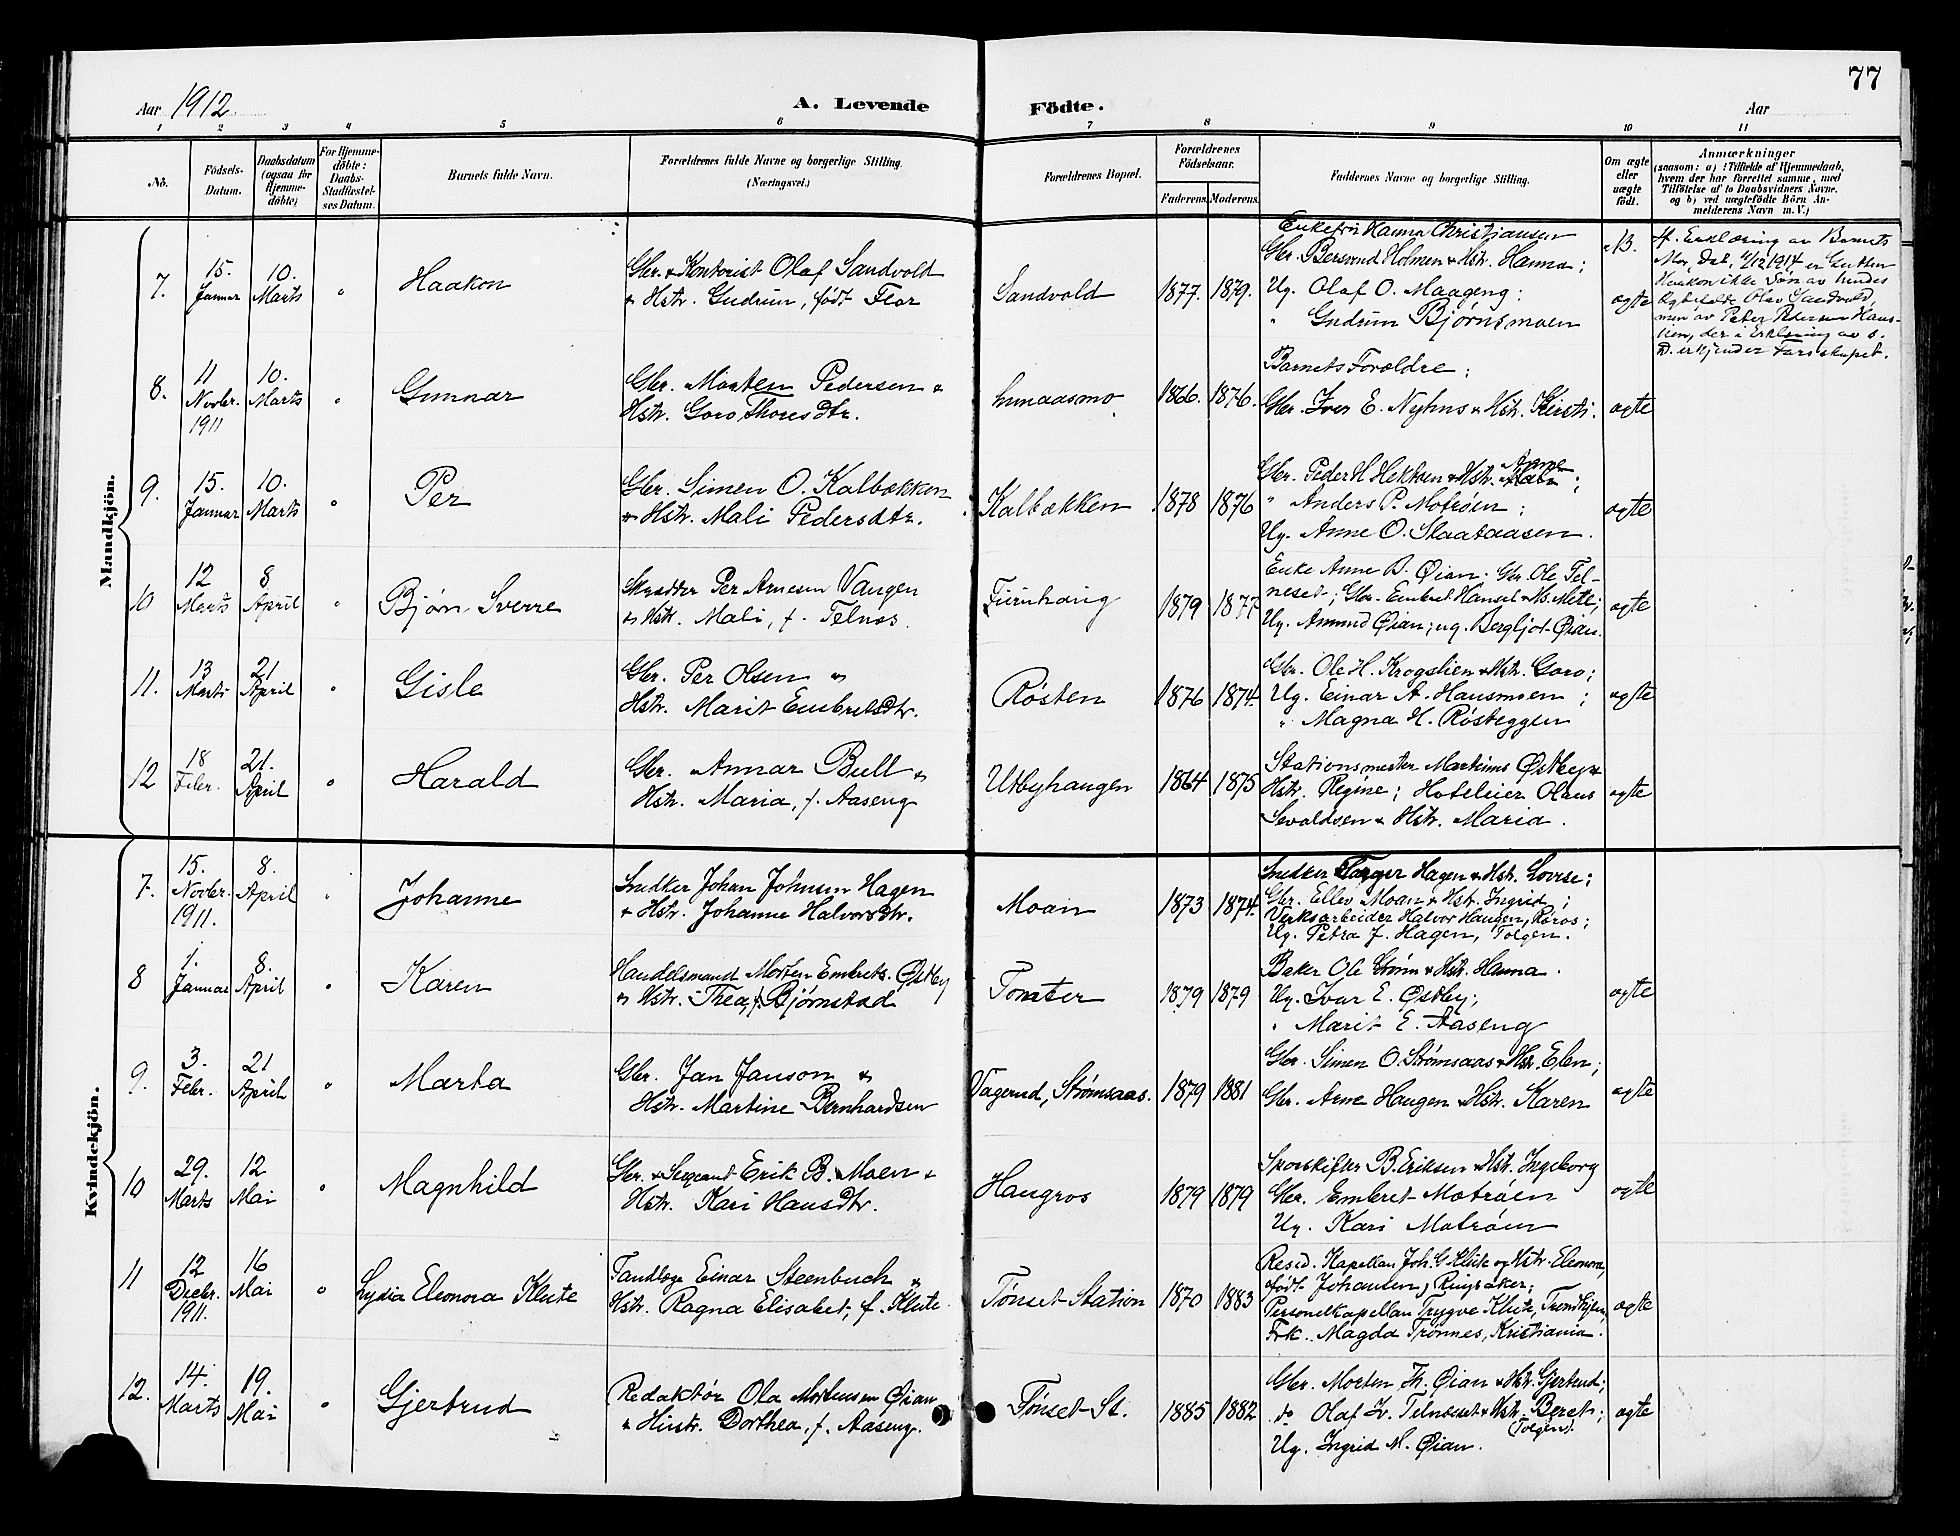 77
Aar 1912
A. Levende Födte.
Aar
1 2 3 4 5 6 7 8 9 10 11
No.
Födsels-Datum.
Daabsdatum (ogsaa for Hjemme-döbte)
For Hjemme-döbte: Daabs-Stadfæstel-ses Datum.
Barnets fulde Navn.
Forældrenes fulde Navne og borgerlige Stilling.
(Næringsvei.)
Forældrenes Bopæl.
Forældrenes Födselsaar.
Faderens. Moderens.
Faddernes Navne og borgerlige Stilling.
Om ægte eller uægte født.
Anmærkninger
(saasom: a) i Tilfælde af Hjemmedaab,
hvem der har forrettet samme, med
Tilföielse af to Daabsvidners Navne,
og b) ved uægtefödte Börn An-
melderens Navn m. V.)
Mandkjön.
7. 15. Januar 10. Marts " Haakon
Gbr. & Kontorist Olaf Sandvold
& Hstr. Gudrun, født Flor
Sandvold 1877. 1879.
Enkefru Hanna Christiansen
Gbr. Bersvend Holmen & Hstr. Hanna;
Ug. Olaf O. Maageng;
" Gudrun Bjørnsmoen
ægte
B. If. Erklæring av Barnets
Mor, dat. 11/12 1914 er Gutten
Haakon ikke Søn av hendes
Ægtefælde Olav Sandvold,
men av Peter Pedersen Haus-
lien, der i Erklæring av s.
D. erkjender Farsskapet.
8. 11 Novbr. 1911 10. Marts " Gunnar
Gbr. Morten Pedersen &
Hstr. Goro Thoresdtr.
Lunaasmo 1866. 1876.
Barnets Forældre;
Gbr. Iver E. Nyhus & Hstr. Kirsti.
ægte
9. 15. Januar 10. Marts " Per
Gbr. Simen O. Kalbækken
& Hstr. Mali Pedersdtr.
Kalbækken 1878 1876
Gbr. Peder H Hektoen & Hstr. Anne;
" Anders P. Motrøen;
Ug. Anne O. Staataasen.
ægte
10 12 Marts 8 April " Bjørn Sverre
Skrædder Per Arnesen Vangen
& Hstr. Mali, f. Telnes.
Furuhaug 1879 1877
Enke Anne B. Øian. Gbr. Ole Tel-
neset; Gbr. Embret Hansel & Hs. Mette;
Ug. Amund Øian; ug. Bergljot Øian.
ægte
11. 13 Marts 21 April " Gisle
Gbr. Per Olsen &
Hstr. Marit Embretsdtr.
Røsten 1876 1874.
Gbr. Ole H. Krogslien & Hstr. Goro;
Ug. Einar A. Hausmoen;
" Magna H. Røsteggen
ægte
12 18 Febr. 21. April " Harald
Gbr. Annar Bull &
Hstr. Maria, f. Aaseng
Utbyhaugen 1864 1875
Stationsmester Martinus Østby &
Hstr. Regine; Hoteleier Olaus
Sevaldsen & Hstr. Maria.
ægte
Kvindekjön.
7. 15. Novbr. 1911. 8. April " Johanne
Snedker Johan Johnsen Hagen
& Hstr. Johanne Halvorsdtr.
Moan 1873 1874.
Snedker Hagen & Hstr. Lovise;
Gbr. Ellev Moan & Hstr. Ingrid;
Verksarbeider Halvor Haugen, Røros;
Ug. Petra J. Hagen, Tolgen.
8 1. Januar 8. April " Karen
Handelsmand Morten Embrets. Østby
& Hstr. Thea, f. Bjørnstad
Tomter 1879 1879
Baker Ole Strøm & Hstr. Hanna.
Ug. Ivar E. Østby;
" Marit E. Aaseng
ægte
9. 3. Febr. 21 April " Marta
Gbr. Jan Janson &
Hstr. Martine Bernhardsen
Vagerud, Strømsaas. 1879 1881
Gbr. Simen O. Strømsaas & Hstr. Elen;
Gbr. Arne Haugen & Hstr. Karen
ægte
10 29. Marts 12 Mai " Magnhild
Gbr. & Sergeant Erik B. Moen &
Hstr. Kari Hansdtr.
Haugros 1879 1879
Sporskifter B. Eriksen & Hstr. Ingeborg
Gbr. Embret Motrøen
Ug. Kari Motrøen
ægte
11 12 Decbr. 1911. 16 Mai " Lydia Eleonora Klute
Tandlæge Einar Steenbuch &
Hstr. Ragna Elisabet, f. Klute.
Tønset Station 1870 1883
Resid. Kapellan Joh. G Klute og Hstr. Eleonora,
født Johansen, Ringsaker;
Personelkapellan Trygve Klute, Trondhjem,
Frk. Magda Trønnes, Kristiania.
ægte
12. 14. Marts 19. Mai " Gjertrud
Redaktør Ola Mortensen Øian
& Hustr. Dorthea, f. Aaseng.
Tønset St. 1885 1882
Gbr. Morten Th. Øian & Hstr. Gjertrud;
do Olaf Iv. Telneset & Hstr. Beret;
(Tolgen).
Ug. Ingrid M. Øian.
ægte